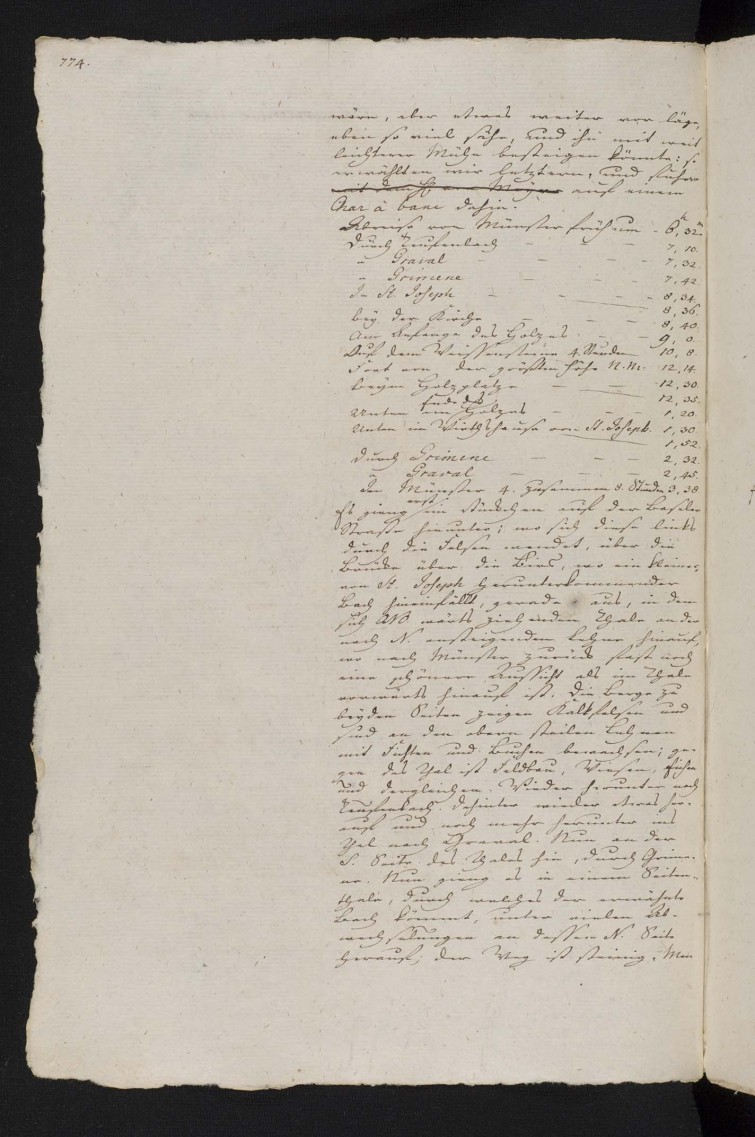 774.
wäre, aber etwas weiter vor läge,
eben so viel sähe, und ihn mit weit
leichterer Mühe besteigen könnte; so
erwählten wir letztern, und fuhren
mit dem H. auf einem
Char à banc dahin.
Abreise von Münster früh um - 6,h 32.m
Durch Teufenbach - - - 7, 10.
" Graval - - - 7, 32.
" Grimene - - - 7, 42
In St. Joseph - - - 8, 34.
8, 36.
bey der Kirche - - - 8, 40.
Am Anfange des Holzes - - 9, 0.
Auf dem Weissensteine 4. Stunden 10, 8.
Fort von der größten Höhe N.N. 12, 14.
beym Holzplatze - - 12, 30.
12, 35.
Unten Ende des Holzes - - 1, 20.
Unten im Wirthshause von St. Joseph. 1, 30.
1, 52.
Durch Grimene - - - 2, 32.
" Graval - - - 2, 45.
In Münster 4. zusammen 8. Stunden 3, 38.
Es gieng erst ein Stückchen auf der Baseler
Straße hinunter; wo sich diese links
durch die Felsen wendet, über die
Brücke über die Birs, wo ein kleiner,
von St. Joseph herunterkommender
Bach hineinfällt, gerade aus, in dem
sich wärts ziehenden Thale an der
nach N. ansteigenden Lehne hinauf,
wo nach Münster zurück fast noch
eine schönere Aussicht als im Thale
vorwärts hinauf ist. Die Berge zu
beyden Seiten zeigen Kalkfelsen und
sind an den obern steilen Lehnen
mit Fichten und Buchen bewachsen; ge-
gen das Thal ist Feldbau, Wiesen,
und dergleichen. Wieder herunter nach
Teufenbach. Dahinter wieder etwas her-
auf und noch mehr herunter ins
Thal nach Graval. Nun an der
S. Seite des Thales hin, durch Grime-
ne. Nun gieng es in einem Seiten-
thale, durch welches der erwähnte
Bach kömmt, unter vielen Ab-
wechselungen an dessen N. Seite
herauf; der Weg ist steinig. Man